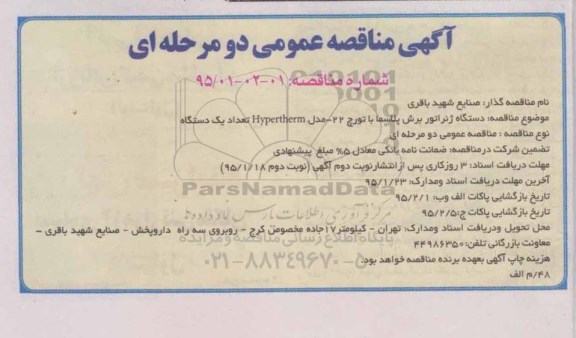 آگهی مناقصه عمومی دو مرحله ای
شماره مناقصه: ۰۱-۰۲-۹۵/۰۱
نام مناقصه گذار: صنایع شهید باقری
موضوع مناقصه: دستگاه ژنراتور برش پلاسما با تورچ ۲۲-مدل Hypertherm تعداد یک دستگاه
نوع مناقصه : مناقصه عمومی دو مرحله ای
تضمین شرکت درمناقصه: ضمانت نامه بانکی معادل ۵% مبلغ پیشنهادی
مهلت دریافت اسناد: ۳ روزکاری پس ازانتشارنوبت دوم آگهی (نوبت دوم ۹۵/۱/۱۸)
آخرین مهلت دریافت اسناد ومدارک: ۹۵/۱/۲۳
تاریخ بازگشایی پاکات الف وب: ۹۵/۲/۱
تاریخ بازگشایی پاکات ج: ۹۵/۲/۵
محل تحویل ودریافت اسناد ومدارک: تهران - کیلومتر۱۷جاده مخصوص کرج - روبروی سه راه داروپخش - صنایع شهید باقری -
معاونت بازرگانی تلفن: ۴۴۹۸۶۳۵۰
هزینه چاپ آگهی بعهده برنده مناقصه خواهد بود.
۴۸/م الف
ParsNamadData
مرکز فرآوری اطلاعات پارس نماد داده ها
پایگاه اطلاع رسانی مناقصه و مزایده
۰۲۱-۸۸۳۴۹۶۷۰-۵